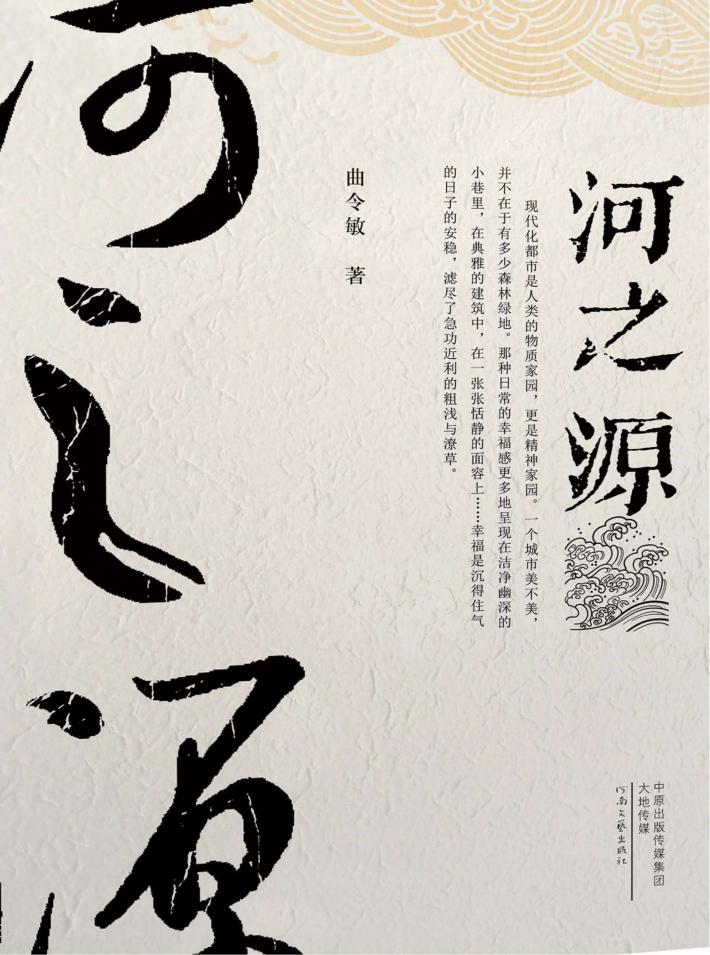 河之源
现代化都市是人类的物质家园，更是精神家园。一个城市美不美，
并不在于有多少森林绿地。那种日常的幸福感更多地呈现在洁净幽深的
小巷里，在典雅的建筑中，在一张张恬静的面容上……幸福是沉得住气
的日子的安稳，滤尽了急功近利的粗浅与潦草。
曲令敏 著
河之源
中原出版传媒集团
大地传媒
河南文艺出版社